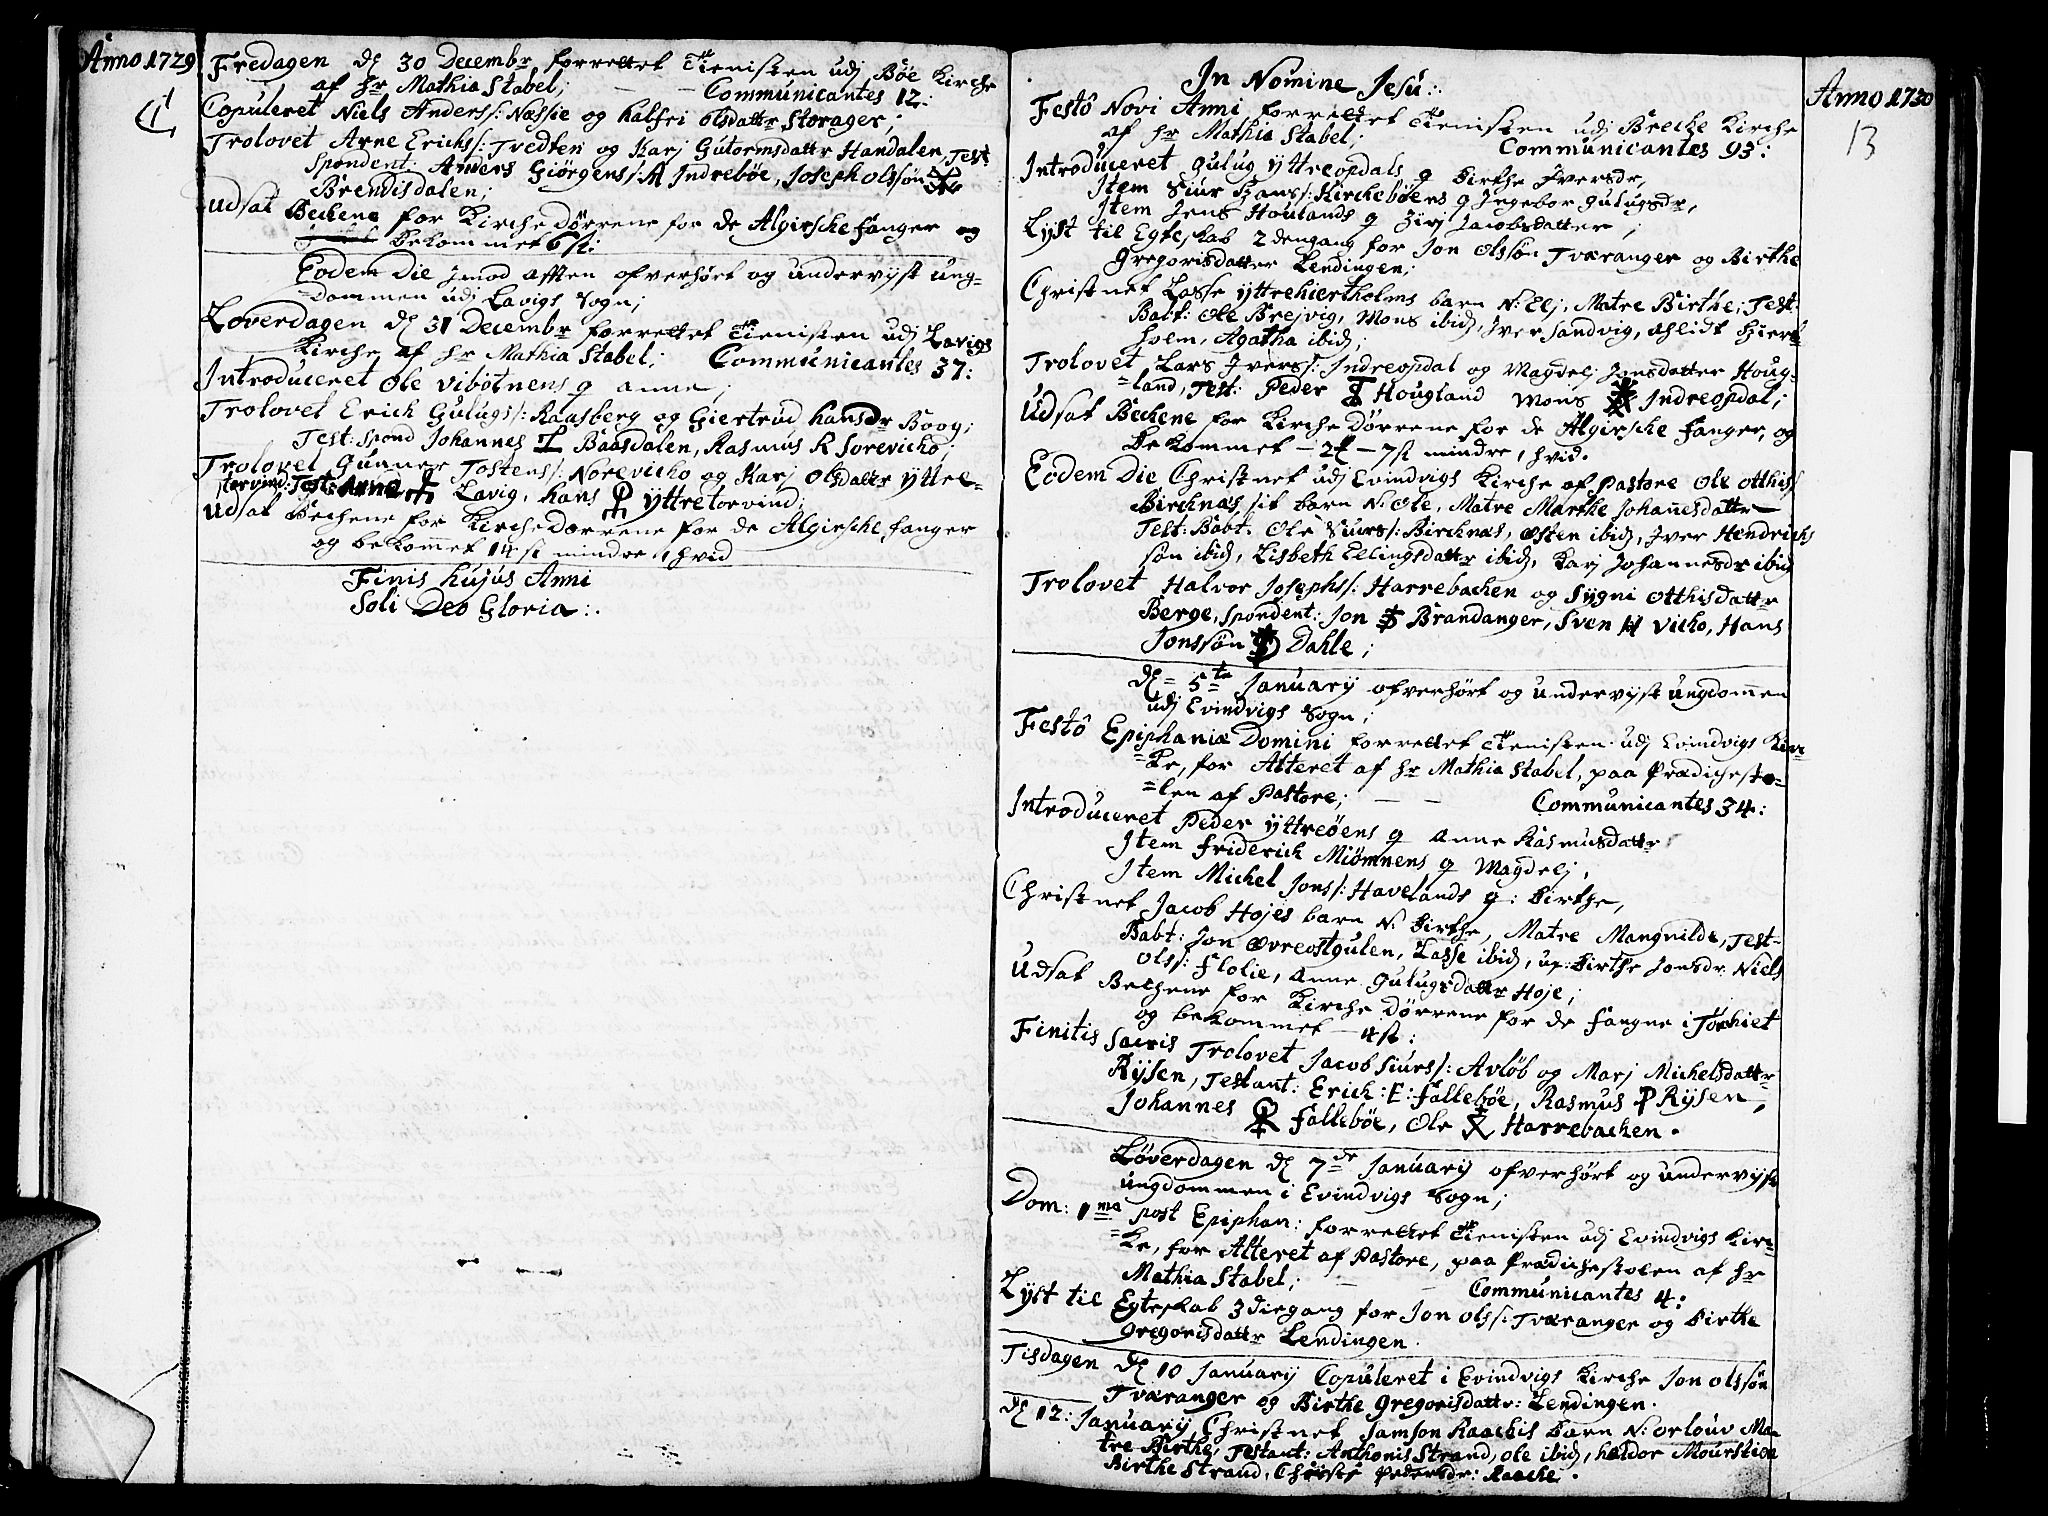 Anno 1729
Fredagen d. 30 Decembr forrettet Tienisten udj Böe Kirche
af hr Mathia Stabel; — — Communicantes 12:
Copuleret Niels Anderss: Næssie og halfri olsdattr Storager;
Trolovet Arne Erichs: Tvedten og Karj Gutormsdattr Handalen, Test
Spondent: Anders Giörgens: A Indreböe, Joseph olssön
Brendisdalen;
Udsat Bechene for Kirche dörrene for de Algirsche fanger og
bekommet 6 st:
Eodem Die imod afften ofverhört og undervijst ung-
=dommen udj Lavigs Sogn;
Löverdagen d. 31 Decembr forrettet Tienisten udj Lavigs
Kirche af hr Mathia Stabel; Communicantes 37:
Introduceret Ole vibötnens q anne;
Trolovet Erich Gulugs: Raasberg og Giertrud hansdr Boog;
Test: Spond Johannes Baasdalen, Rasmus R Sorevicho;
Trolovet Gunner Tostens: Norevicho og Karj Olsdattr yttre-
torvind: Test: Arne Lavig, hans yttretorvind;
Udsat Bechene for Kirche Dörrene for de Algirsche fanger
og bekommet 14 st mindre 1 hvid
Finis hujus Anni
Soli Deo Gloria:.
Anno 1730
13
In Nomine Jesu:.
Festô Novi Anni forrettet Tienisten udj Breche Kirche
af hr Mathia Stabel; Communicantes 93:
Introduceret Gulug yttreopdals q Birthe Iversdr,
Item Siur Hans: Kirckeböens q Ingebor Gulugsdr,
Item Jens Houlands q Zirj Jacobsdatter;
Lyst til Egteskab 2 dengang for Jon Olssön Tværanger og Birthe
Gregorisdatter Lendingen;
Christnet Lasse yttrehiertholms barn N: Elj, Matre Birthe; Test:
Babt: Ole Brejvig, Mons ibid, Iver Sandvig, Ahlidt Hiert
holm, Agatha ibid;
Trolovet Lars Ivers: Indreopdal og Magdelj Jonsdatter Houg-
=land, Test: Peder Hougland Mons Indreopdal;
Udsat Bechene for Kirche dörrene for de Algirsche fanger, og
bekommet — 2 — 7 st mindre 1 hvid.
Eodem Die Christnet udj Evindvigs Kirche af Pastore Ole Otthiss
Bircknæs sit barn N: Ole, Matre Marthe Johannesdattr
Test: Babt: Ole Siurs: Bircknæs, Osten ibid, Iver Hendrichs
sön ibid, Lisbeth Ellingsdattr ibid, Karj Johannesdr ibid
Trolovet Halvor Josephs: Harrebachen og Sygni Otthisdattr
Berge, Spondent: Jon Brandanger, Sven H Vicho, Hans
Jonssön Dahle;
d. 5te January ofverhört og undervijst ungdommen
udj Evindvigs Sogn;
Festô Epiphaniæ Domini forrettet Tienisten udj Evindvigs Kir-
=ke, for Alteret af hr Mathia Stabel, paa Prædichesto-
=len af Pastore; — — Communicantes 34:
Introduceret Peder yttreöens q Anne Rasmusdattr
Item friderich Miömnens q Magdelj,
Item Michel Jons: Havelands q: Birthe,
Christnet Jacob Hojes barn N: Birthe, Matre Mangnilde, Test-
Babt: Jon Ovreostgulen, Lasse ibid, ux: Birthe Jonsdr: Niels
Ols: flolie, Anne Gulugsdattr Hoje;
Udsat Bechene for Kirche Dörrene for de fangne i Torkiet
og bekommet — 4 st:
Finitis Sacris Trolovet Jacob Siurs: Avlöb og Marj Michelsdattr
Rijsen, Testant: Erich: E: falleböe, Rasmus P Rijsen,
Johannes falleböe, Ole Harrebachen.
Löverdagen d. 7de January ofverhört og undervijst
ungdommen i Evindvigs Sogn;
Dom: 1ma post Epiphan: forrettet Tienisten udj Evindvigs Kir-
=ke, for Alteret af Pastore, paa Prædichestolen af hr
Mathia Stabel; — Communicantes 4:
Lyst til Egteskab 3 diegang for Jon ols: Tværanger og Birthe
Gregorisdattr Lendingen.
Tisdagen d. 10 January Copuleret i Evindvigs Kirche Jon olssön
Tværanger og Birthe Gregorisdattr: Lendingen.
d. 12: January Christnet Samson Raachis barn N: orlouv Ma-
tre Birthe, Testant: Anthonis Strand, ole ibid, haldor Mourstien
Birthe Strand, Christi Pedersdr: Raache.